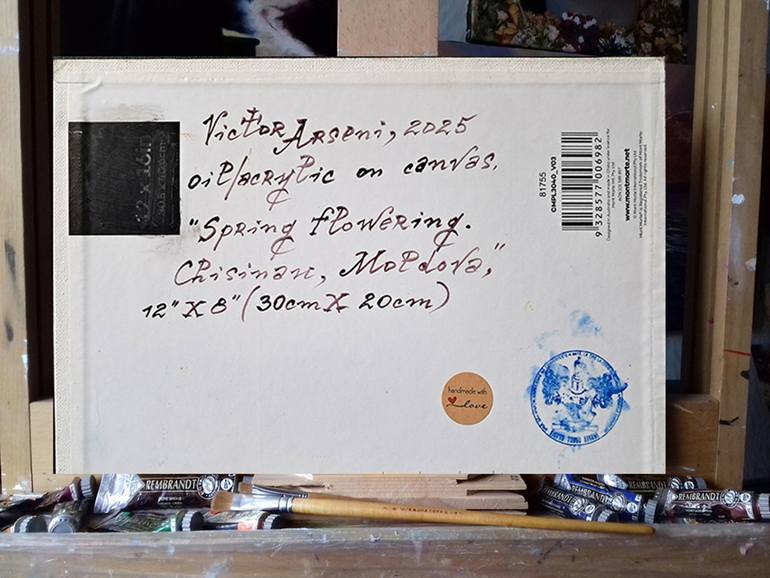 Victor Arseni, 2025
oil/acrylic on canvas.
"Spring flowering.
Chisinau, Moldova,"
12" X 8" (30cm X 20cm)
12 x 16in
81755
CMPL3040_V03
9 328577 006982
www.montmarte.net
handmade with
Love
REMBRANDT
REMBRANDT
REMBRANDT